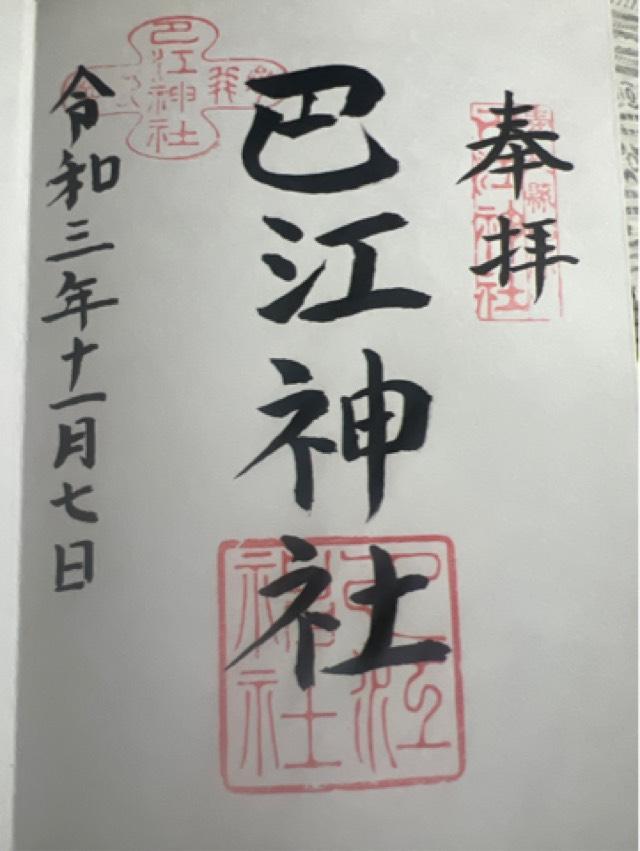 奉拝
巴江神社
令和三年十一月七日
巴江神社
巴江神社